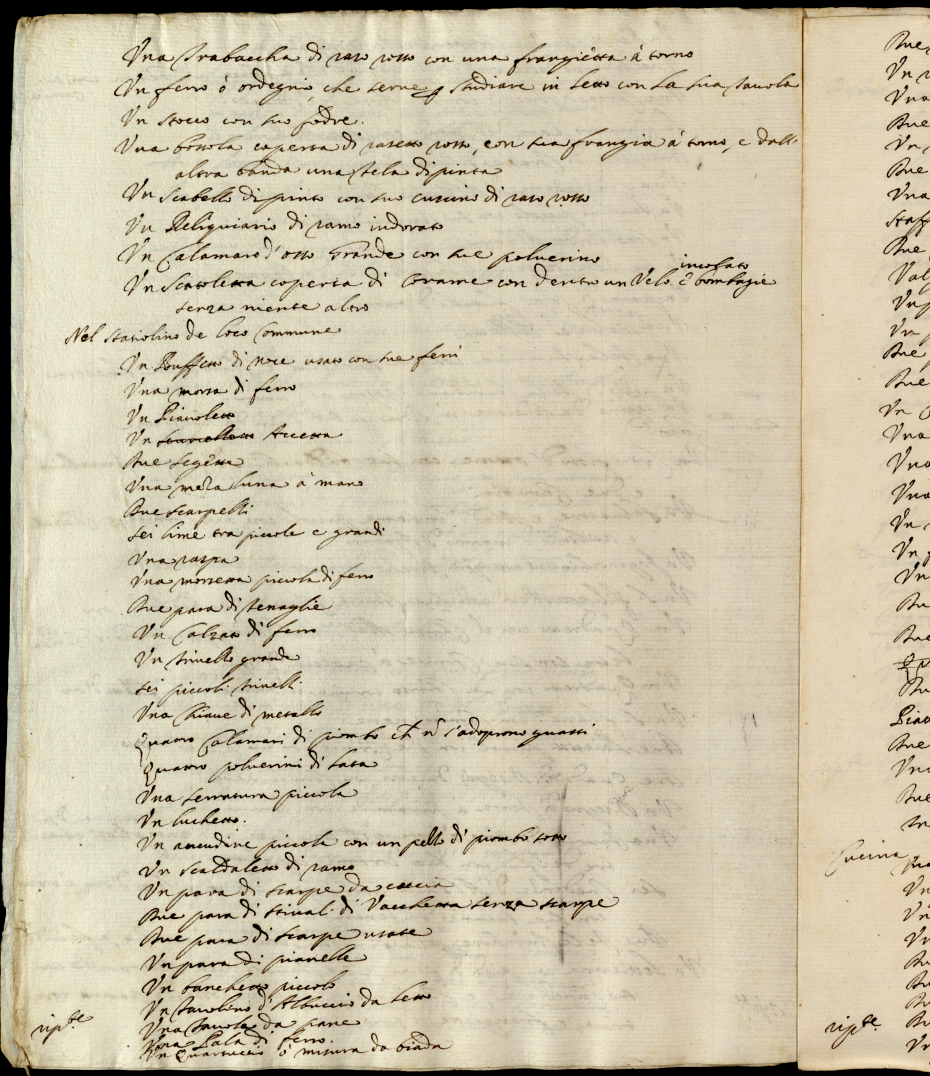 Una Trabaccha di raso rosso con una frangietta à torno
Un ferro ò ordegno, che serve p studiare in letto con la sua tavola
Un stocco con suo fodre.
Una bossola coperta di rasetto rosso, con sua frangia à torno, e dall'
altra banda una tela dipinta
Un scabello dipinto con suo cuscino di raso rosso
Un Reliquiario di ramo indorato
Un Calamaro d'osso grande con sue polverino
incolato
Un Scatoletta coperta di Corame con dentro un Velo è bombagie
senza niente altro
Nel stanziolino de loco Commune
Un Buffetto di noce usato con sue ferri
Una morsa di ferro
Un Piavoletto
Un Accetta
Due segette
Una meza luna à mano
Due scarpelli
sei lime tra piccole e grandi
Una raspa
Una morsetta piccola di ferro
Due para di tenaglie
Un Calzato di ferro
Un trivello grande
sei piccoli trivelli
Una Chiave di metallo
Quattro Calamari di piombo ch nõ s'adoprono guasti
Quattro polverini di lata
Una serratura piccola
Un luchetto.
Un ancudine piccola con un pello di piombo sotto
Un scaldaletto di ramo
Un para di scarpe da caccia
Due para di stivali di Vacchetta senza scarpe
Due para di scarpe usate
Un para di pianelle
Un banchetto piccolo
Un tavolino d'Albuccio da letto
Una tavola da pane
Una Pala di ferro.
Un Quartuccio ò misura da biada
Due
Un
Una
Due
Un
Due
Una
Staff
Due
Un
Un
Due
Due
Un
Una
Una
Una
Un
Un
Un
Due
Due
Due
Una
Cucina
Un
Un
Un